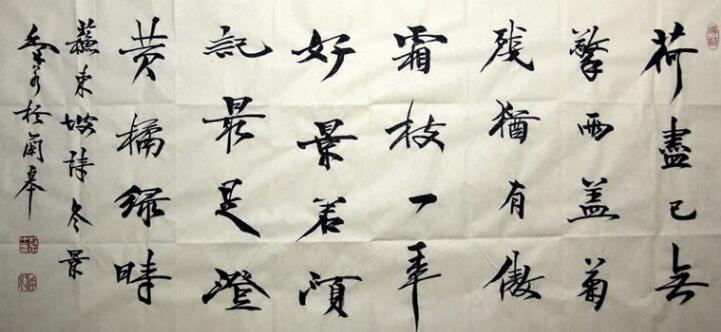 荷盡已無
擎雨盖菊
殘猶有傲
霜枝一年
好景君須
記最是澄
黄橘绿時
蘇東坡詩冬景
於蘭皋